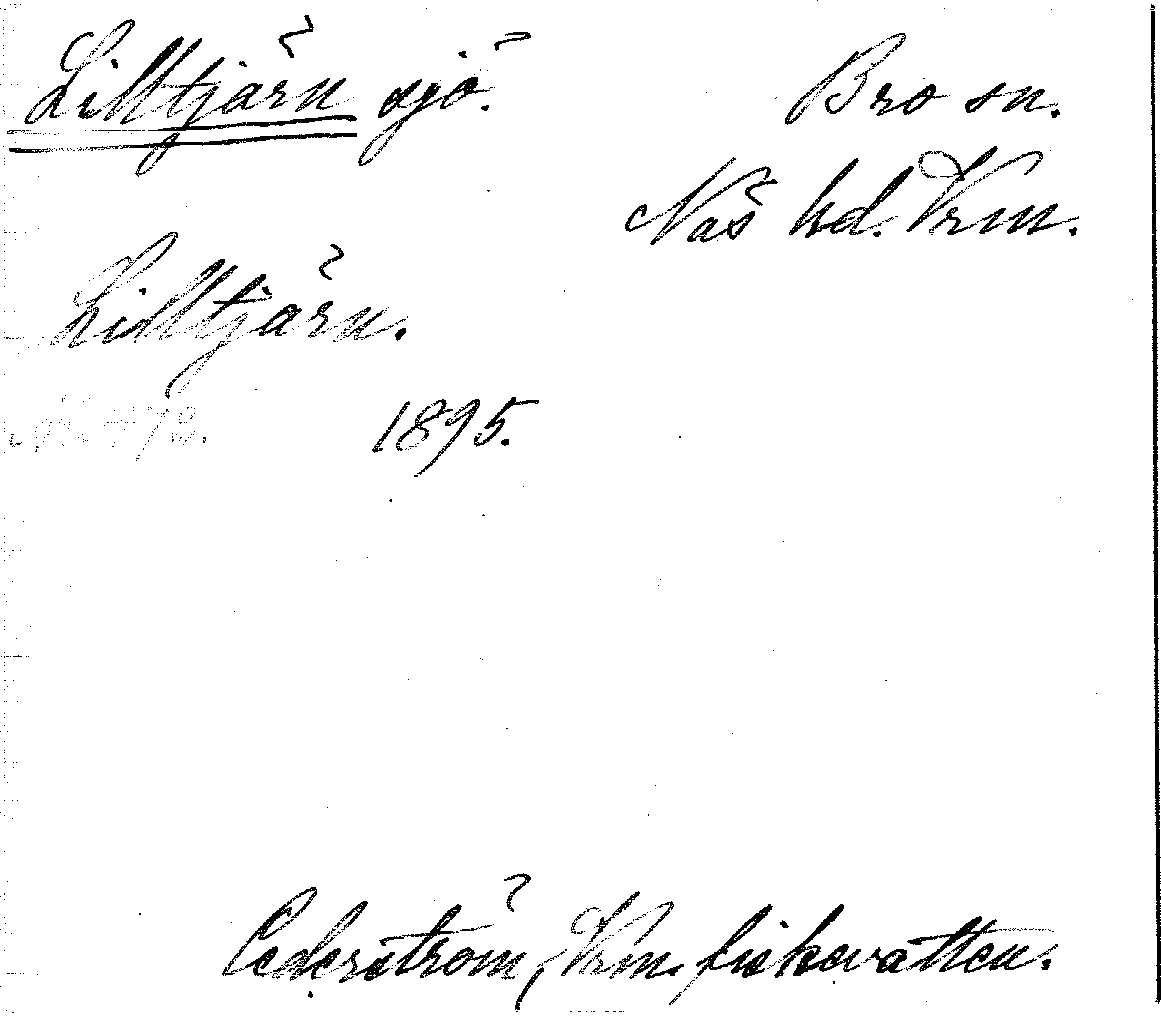 Lilltjärn sjö.
Bro sn.
Näs hd. Vrm.
Lilltjärn.
1895.
Cederström, Vrm. fiskevatten.